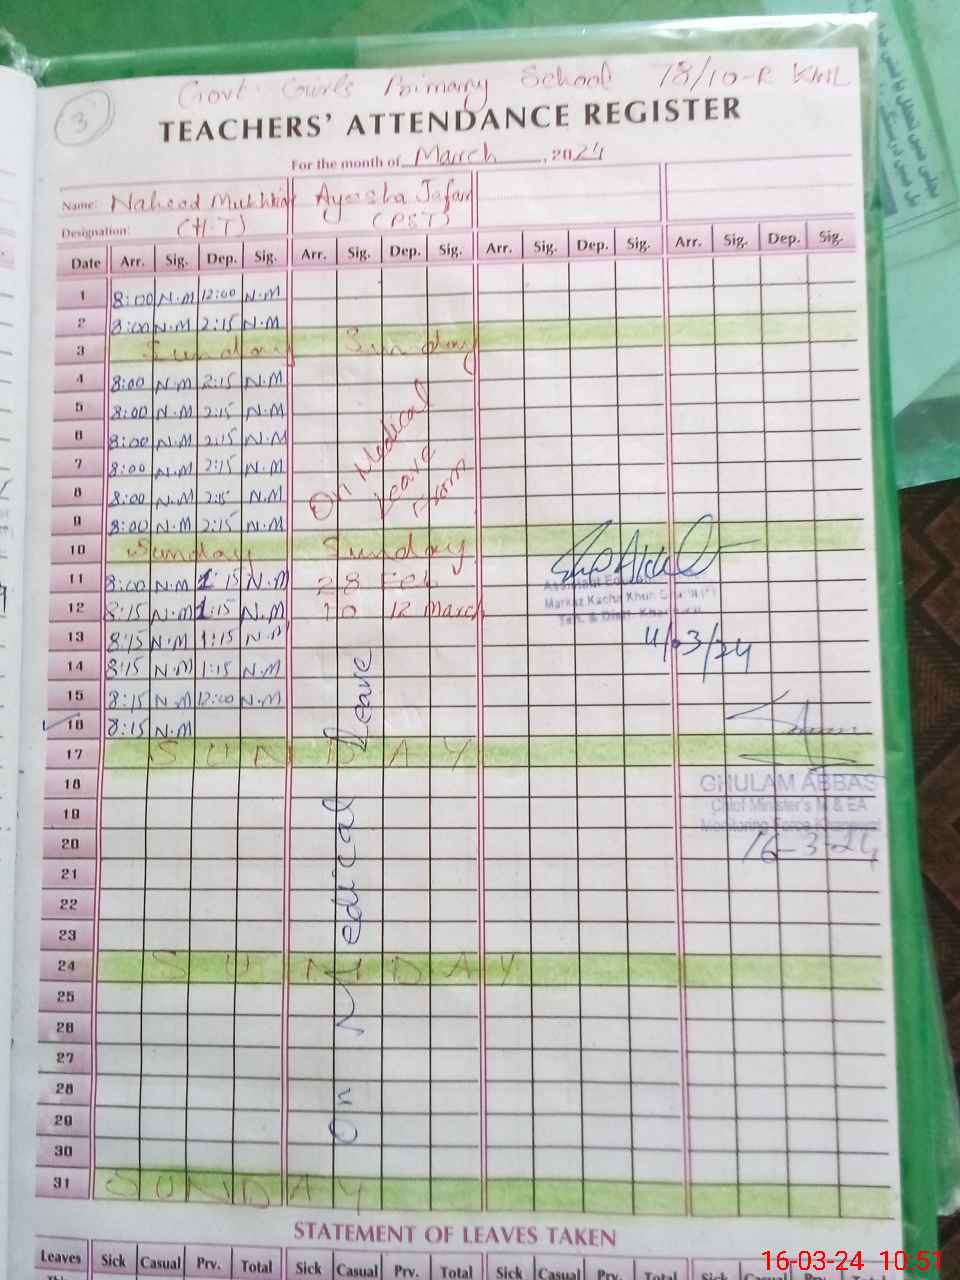 3
Govt. Girls Primary School 78/10-R KWL
TEACHERS' ATTENDANCE REGISTER
For the month of March, 2024
Name: Naheed Mukhtar Ayesha Jafar
Designation: (H.T) (PST)
Date Arr. Sig. Dep. Sig. Arr. Sig. Dep. Sig. Arr. Sig. Dep. Sig. Arr. Sig. Dep. Sig.
1 8:00 N.M 12:00 N.M
2 8:00 N.M 2:15 N.M
3 Sunday Sunday
4 8:00 N.M 2:15 N.M
5 8:00 N.M 2:15 N.M
6 8:00 N.M 2:15 N.M
7 8:00 N.M 2:15 N.M
8 8:00 N.M 2:15 N.M
9 8:00 N.M 2:15 N.M
On Medical
Leave
From
10 Sunday Sunday
11 8:00 N.M 1:15 N.M 28 Feb
12 8:15 N.M 1:15 N.M To 12 March
13 8:15 N.M 1:15 N.M
14 8:15 N.M 1:15 N.M
15 8:15 N.M 12:00 N.M
16 8:15 N.M
17 SUNDAY
18
19
20
21
22
23
24 SUNDAY
25
26
27
28
29
30
31 SUNDAY
On Medical Leave
Markaz Kacha Khuh
11/03/24
GHULAM ABBAS
Chief Minister's M & EA
Monitoring Force Khanewal
16-3-24
STATEMENT OF LEAVES TAKEN
Leaves Sick Casual Prv. Total Sick Casual Prv. Total Sick Casual Prv. Total Sick Casual Prv.
16-03-24 10:51